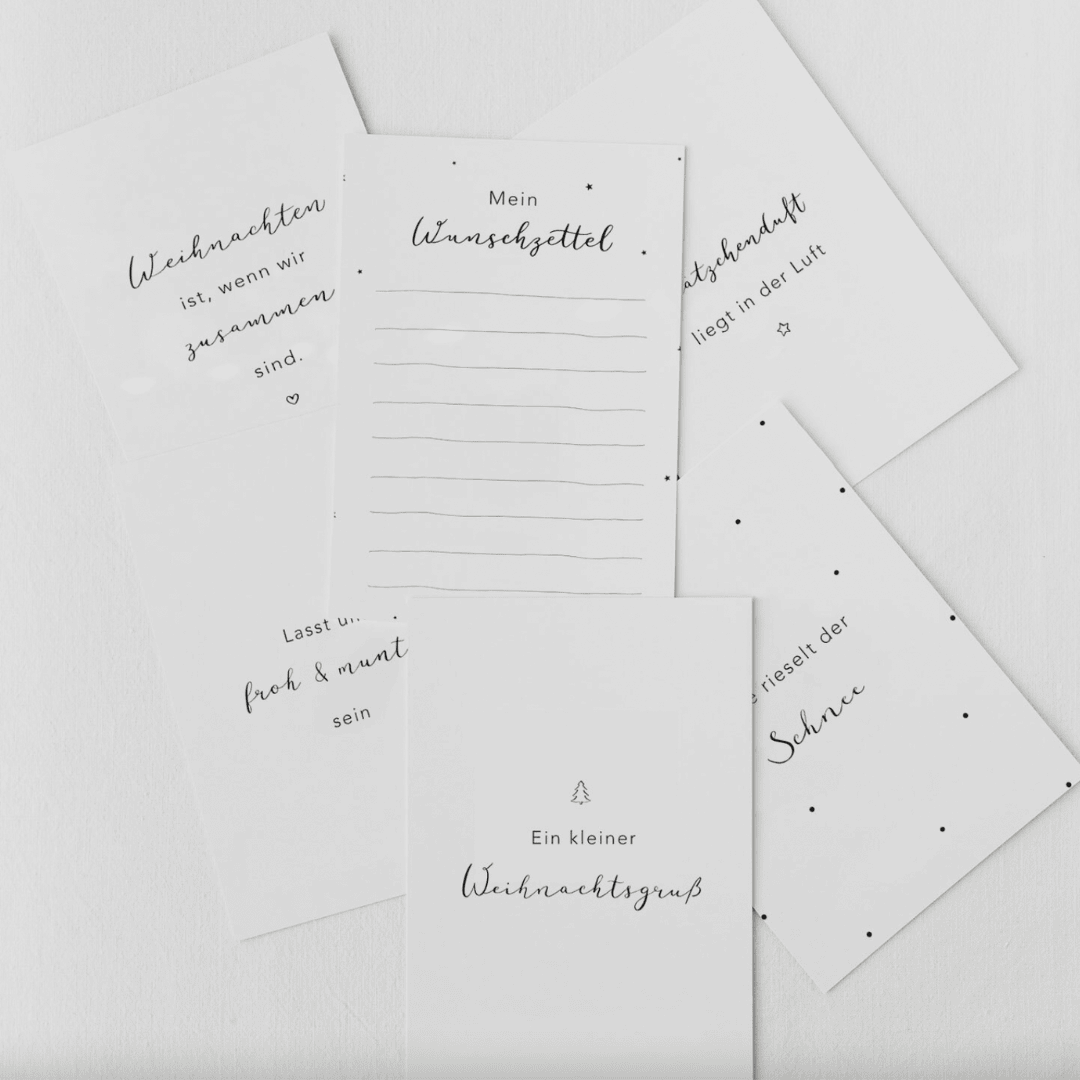 Weihnachten
ist, wenn wir
zusammen
sind.
Mein
Wunschzettel
ätzchenduft
liegt in der Luft
Lasst
froh & munt
sein
rieselt der
Schnee
Ein kleiner
Weihnachtsgruß